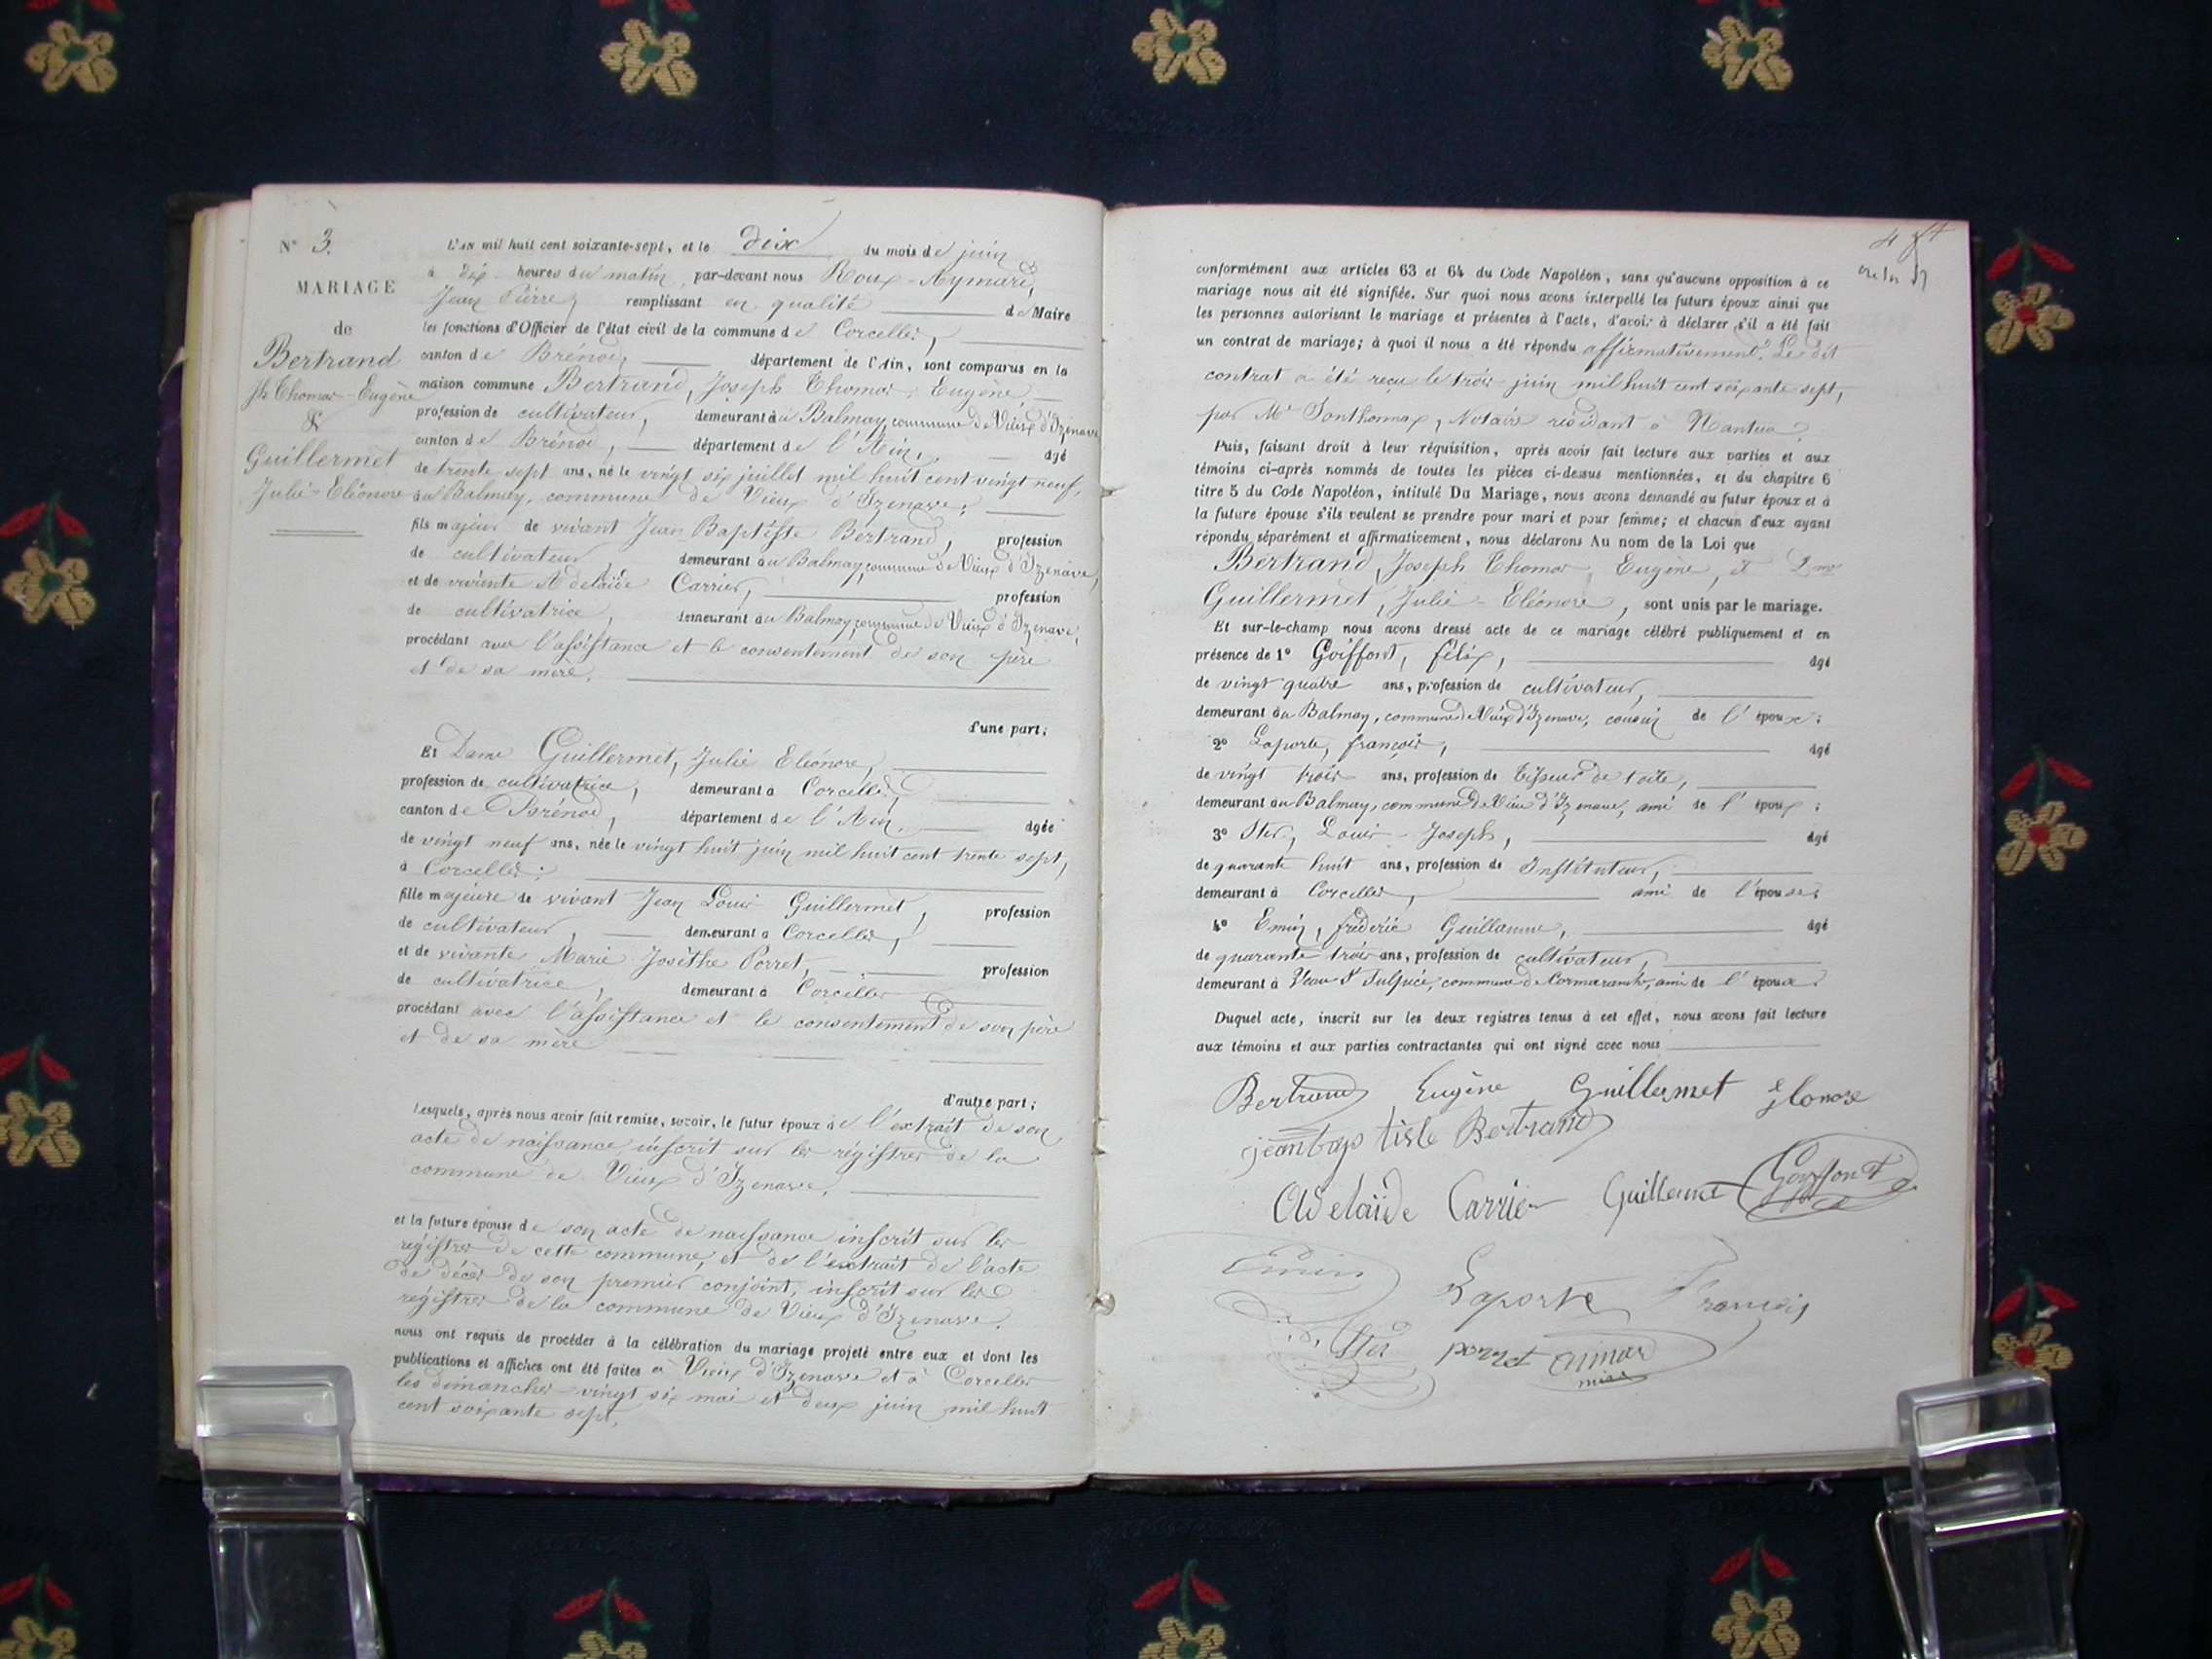 N° 3.
MARIAGE
de
Bertrand
Jh Thomas-Eugène
&
Guillermet
Julie-Eléonore
L'AN mil huit cent soixante-sept, et le dix du mois de juin
à dix heures du matin, par-devant nous Roux-Aymard,
Jean Pierre, remplissant en qualité de Maire
les fonctions d'Officier de l'état civil de la commune de Corcelles,
canton de Brénod, département de l'Ain, sont comparus en la
maison commune Bertrand, Joseph Thomas, Eugène,
profession de cultivateur, demeurant au Balmay, commune de Vieux d'Izenave
canton de Brénod, département de l'Ain, âgé
de trente sept ans, né le vingt six juillet mil huit cent vingt neuf,
au Balmay, commune de Vieux d'Izenave;
fils majeur de vivant Jean Baptiste Bertrand, profession
de cultivateur demeurant au Balmay, commune de Vieux d'Izenave,
et de vivante Adelaïde Carrier, profession
de cultivatrice, demeurant au Balmay, commune de Vieux d'Izenave,
procédant avec l'assistance et le consentement de son père
et de sa mère,
d'une part;
Et Dame Guillermet, Julie Eléonore,
profession de cultivatrice, demeurant à Corcelles,
canton de Brénod, département de l'Ain, âgée
de vingt neuf ans, née le vingt huit juin mil huit cent trente sept,
à Corcelles;
fille majeure de vivant Jean Louis Guillermet, profession
de cultivateur, demeurant à Corcelles,
et de vivante Marie Josèthe Porret, profession
de cultivatrice, demeurant à Corcelles
procédant avec l'assistance et le consentement de son père
et de sa mère
d'autre part;
Lesquels, après nous avoir fait remise, savoir, le futur époux de l'extrait de son
acte de naissance inscrit sur les régistres de la
commune de Vieux d'Izenave,
et la future épouse de son acte de naissance inscrit sur les
régistres de cette commune, et de l'extrait de l'acte
de décès de son premier conjoint, inscrit sur les
régistres de la commune de Vieux d'Izenave.
nous ont requis de procéder à la célébration du mariage projeté entre eux et dont les
publications et affiches ont été faites à Vieux d'Izenave et à Corcelles
les dimanches vingt six mai et deux juin mil huit
cent soixante sept,
conformément aux articles 63 et 64 du Code Napoléon, sans qu'aucune opposition à ce
mariage nous ait été signifiée. Sur quoi nous avons interpellé les futurs époux ainsi que
les personnes autorisant le mariage et présentes à l'acte, d'avoir à déclarer s'il a été fait
un contrat de mariage; à quoi il nous a été répondu affirmativement. Le dit
contrat a été reçu le trois juin mil huit cent soixante sept,
par Me Sonthonnax, Notaire résidant à Nantua
Puis, faisant droit à leur réquisition, après avoir fait lecture aux parties et aux
témoins ci-après nommés de toutes les pièces ci-dessus mentionnées, et du chapitre 6
titre 5 du Code Napoléon, intitulé Du Mariage, nous avons demandé au futur époux et à
la future épouse s'ils veulent se prendre pour mari et pour femme; et chacun d'eux ayant
répondu séparément et affirmativement, nous déclarons Au nom de la Loi que
Bertrand, Joseph Thomas, Eugène, et Dame
Guillermet, Julie-Eléonore, sont unis par le mariage.
Et sur-le-champ nous avons dressé acte de ce mariage célébré publiquement et en
présence de 1° Goiffont, félix, âgé
de vingt quatre ans, profession de cultivateur,
demeurant au Balmay, commune de Vieux d'Izenave, cousin de l'époux;
2° Laporte, françois, âgé
de vingt trois ans, profession de tisseur de toile,
demeurant au Balmay, commune de Vieux d'Izenave, ami de l'époux;
3° Ster, Louis-Joseph, âgé
de quarante huit ans, profession de Instituteur,
demeurant à Corcelles, ami de l'épouse;
4° Emin, fréderic Guillaume, âgé
de quarante trois ans, profession de cultivateur,
demeurant à St Sulpice, commune de Cormaranche, ami de l'époux.
Duquel acte, inscrit sur les deux registres tenus à cet effet, nous avons fait lecture
aux témoins et aux parties contractantes qui ont signé avec nous
Bertrand Eugène Guillermet Elonore
jean bap tiste Bertrand
Adelaïde Carrier Guillermet Goiffont
Emin Laporte François
Ster porret aimar